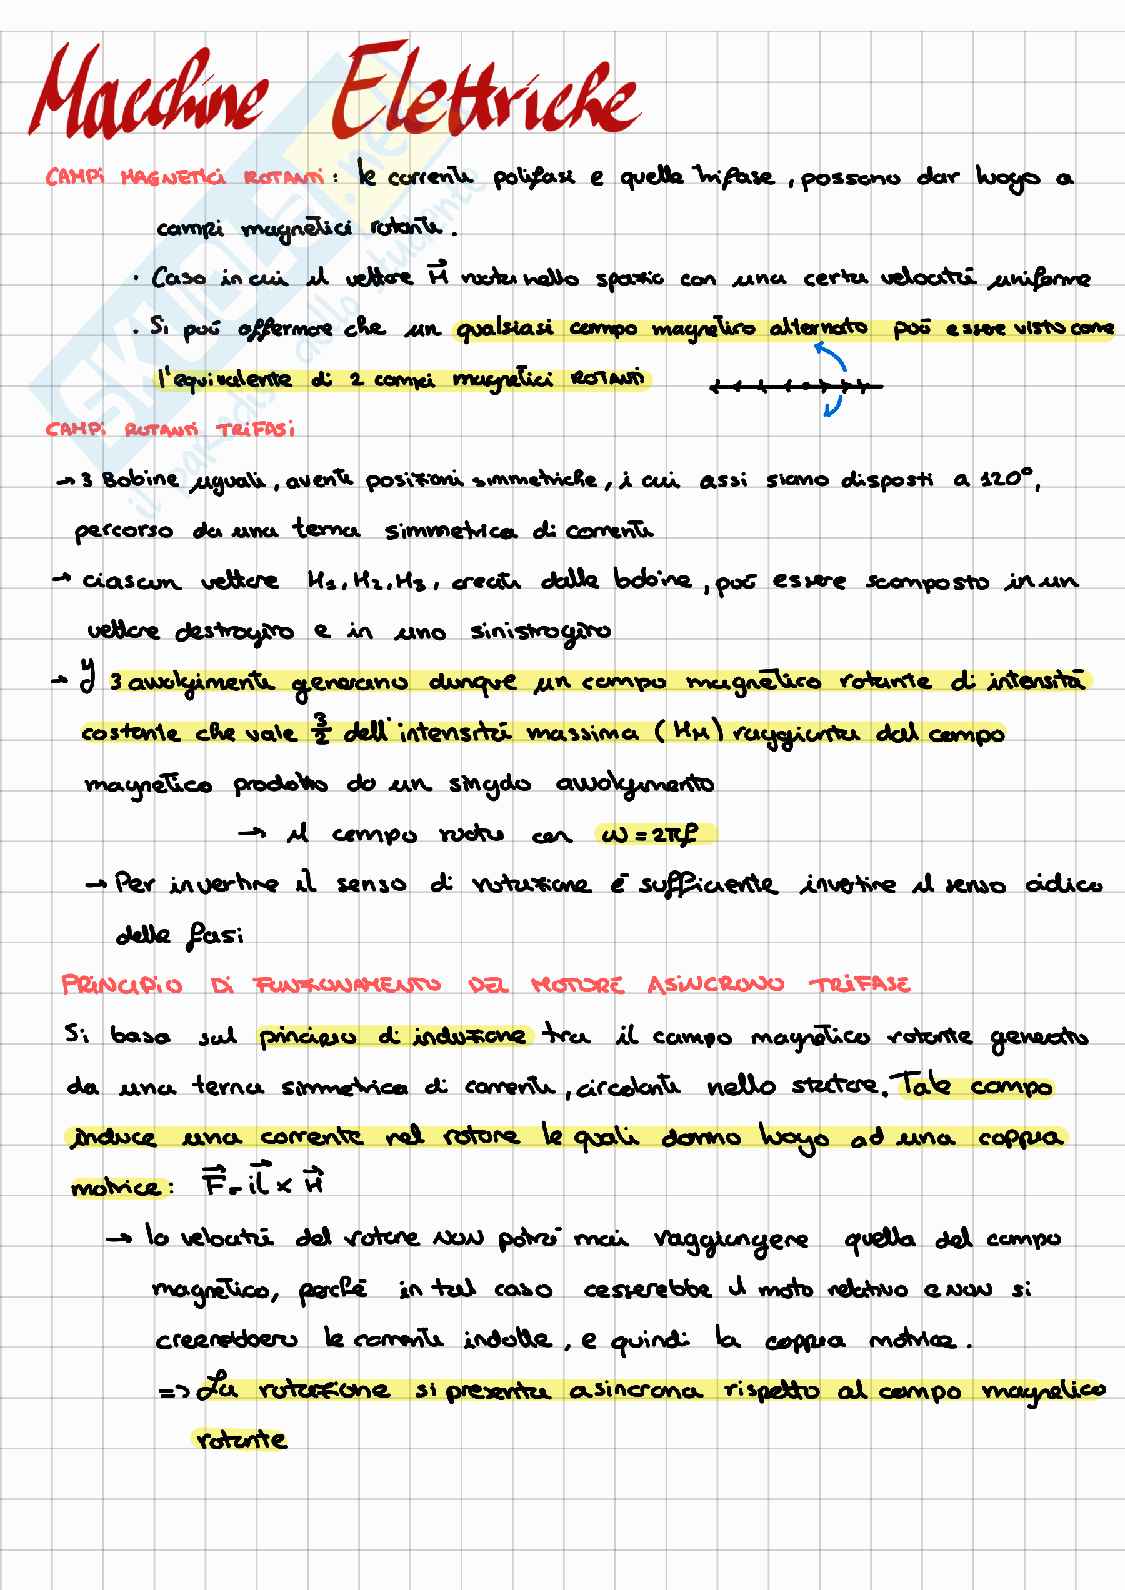 Macchine Elettriche
CAMPI MAGNETICI ROTANTI: le correnti polifasi e quelle trifase, possono dar luogo a
campi magnetici rotanti.
· Caso in cui il vettore H⃗ ruota nello spazio con una certa velocità uniforme
· Si può affermare che un qualsiasi campo magnetico alternato può essere visto come
l'equivalente di 2 campi magnetici ROTANTI
CAMPI ROTANTI TRIFASI
→ 3 Bobine uguali, aventi posizioni simmetriche, i cui assi siano disposti a 120°,
percorso da una terna simmetrica di correnti
→ ciascun vettore H₁, H₂, H₃, creati dalle bobine, può essere scomposto in un
vettore destrogiro e in uno sinistrogiro
→ I 3 avvolgimenti generano dunque un campo magnetico rotante di intensità
costante che vale 3/2 dell'intensità massima (Hм) raggiunta dal campo
magnetico prodotto da un singolo avvolgimento
→ il campo ruota con ω = 2πf
→ Per invertire il senso di rotazione è sufficiente invertire il senso ciclico
delle fasi
PRINCIPIO DI FUNZIONAMENTO DEL MOTORE ASINCRONO TRIFASE
Si basa sul principio di induzione tra il campo magnetico rotante generato
da una terna simmetrica di correnti, circolanti nello statore. Tale campo
induce una corrente nel rotore le quali danno luogo ad una coppia
motrice: F⃗ = il⃗ × H⃗
→ la velocità del rotore NON potrà mai raggiungere quella del campo
magnetico, perché in tal caso cesserebbe il moto relativo e NON si
creerebbero le correnti indotte, e quindi la coppia motrice.
=> La rotazione si presenta asincrona rispetto al campo magnetico
rotante
SKUOLA.net
il paradiso dello studente